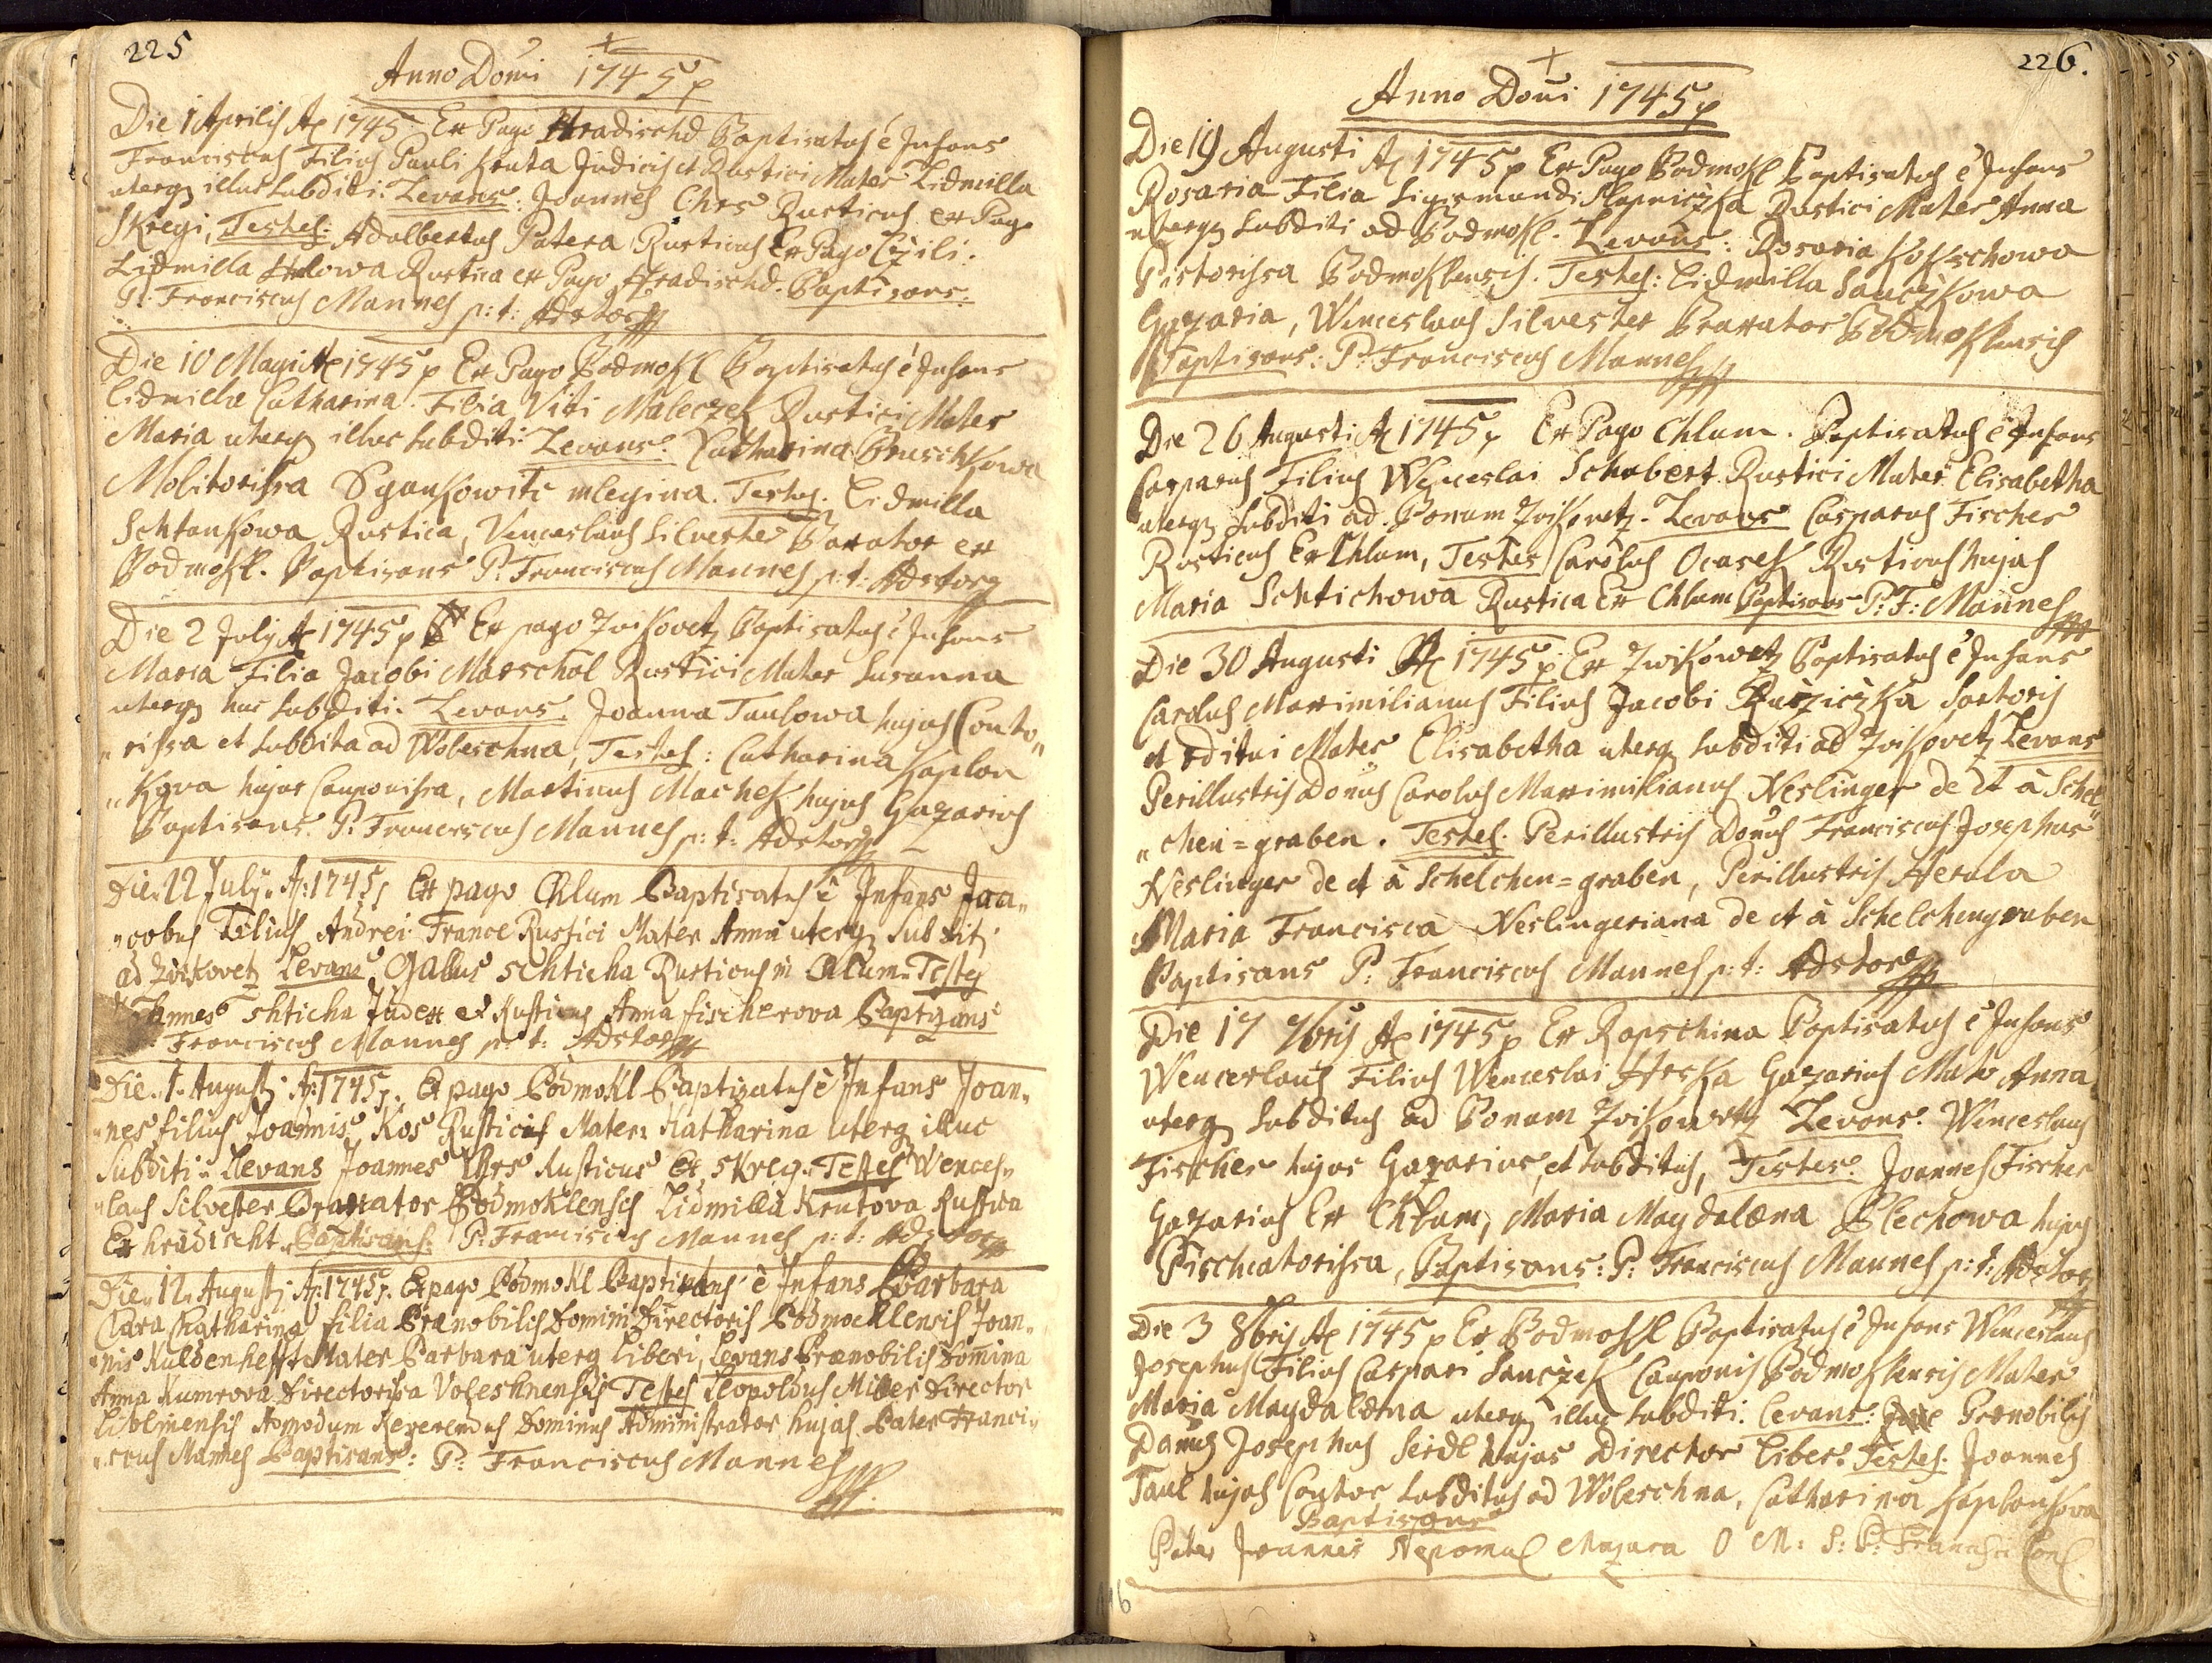 225
Anno Domi 1745 p
Die 1 Aprilis Ao 1745 Ex Pago Hradischd Baptisatus ē Infans
Franciscus Filius Pauli Kruta Judicis et Rustici Mater Lidmilla
uterq illuc subditi. Levans: Joannes Chrs Rusticus ex Pago
Skregi, Testes: Adalbertus Patera Rusticus Ex Pago Czili.
Lidmilla Rustica ex Pago Hradischd. Baptisans:
P: Franciscus Mannes p: t: Adstor
Die 10 Magi Ao 1745 p Ex Pago Podmokl Baptisatus ē Infans
Lidmilla Catharina Filia Viti Maleczek Rustici Mater
Maria uterq illuc subditi: Levans: Catharina Pruschkowa
Molitorissa Sgankowitz mlegina. Testes. Lidmilla
Schtankowa Rustica, Venceslaus Silvester Braxator ex
Podmokl. Baptisans P: Franciscus Mannes p: t: Adstor
Die 2 July Ao 1745 p Ex pago Zvikovetz Baptisatus ē Infans
Maria Filia Jacobi Marschal Rustici Mater Susanna
uterq huc subditi. Levans. Joanna Taulowa hujas Canto„
„rissa et subdita ad Woleschna, Testes: Catharina Kaplan
„Kova hujas Cauponissa, Martinus Machek hujas Gazarius
Baptisans. P: Franciscus Mannes p: t: Adstor
Die 22 July. Ao: 1745 p Ex pago Chlum Baptisatus ē Infans Jaa„
„cobus Filius Andrei France Rustici Mater Anna uterq Subditi
ad Zvikovetz Levans Gallus Schticha Rusticus in Chlum Testes
Schticha Judex et Rusticus Anna fischerova Baptizans
Franciscus Mannes p: t: Adstor
Die 1 Augusti Ao: 1745 p. Ex pago Podmokl Baptizatus ē Infans Joan„
„nes filius Joannis Kos Rusticus Mater Katharina uterq illuc
Subditi Levans Joannes Chrs Rusticus Ex Skreg. Testes Wences„
„laus Silvester Braxator Podmoklensis Lidmilla Krutova Rustica
Ex hradischt Baptisans. P: Franciscus Mannes p: t: Adstor
Die 12 Augusti Ao: 1745 p. Ex pago Podmokl Baptizatus ē Infans Barbara
Clara Chatharina filia Prænobilis Domini Directoris Podmocklensis Joan„
„nis Kuldenhefft Mater Barbara uterq Liberi, Levans Prænobilis Domina
Anna Kumrova Directorissa Voleshnensis Testes Leopoldus Miller Director
Admodum Reverendus Dominus Administrator hujas Pater Franci„
„scus Mannes Baptisans: P: Franciscus Mannes
226.
Anno Domi 1745 p
Die 19 Augusti Ao 1745 p Ex Pago Podmokl Baptisatus ē Infans
Rosaria Filia Sigismundi Slapniczka Rustici Mater Anna
uterq subditi ad Podmokl. Levans: Rosaria Kokschowa
Pistorissa Podmoklensis. Testes: Lidmilla Sauczkowa
Gazaria, Wenceslaus Silvester Braxator Podmoklensis
Baptisans: P: Franciscus Mannes
Die 26 Augusti Ao 1745 p Ex Pago Chlum. Baptisatus ē Infans
Casparus Filius Wenceslai Schubert Rustici Mater Elisabetha
uterq subditi ad Bonum Zvikovetz. Levans Casparus Fischer
Rusticus Ex Chlum, Testes Carolus Ocasek Rusticus hujas
Maria Schtichowa Rustica Ex Chlum Baptisans P: F: Mannes
Die 30 Augusti Ao 1745 p Ex Zwikowetz Baptisatus ē Infans
Carolus Maximilianus Filius Jacobi Ružiczka Sartoris
et editui Mater Elisabetha uterq subditi ad Zvikovetz Levans
Perillustris Donus Carolus Maximilianus Neslinger de et à Schel„
„chen=graben. Testes. Perillustris Donus Franciscus Josephus
Neslinger de et à Schelchen=graben, Perillustris Herula
Maria Francisca Neslingeriana de et à Schelchengraben
Baptisans P: Franciscus Mannes p: t: Adstor
Die 17 7bris Ao 1745 p Ex Rapschina Baptisatus ē Infans
Wenceslaus Filius Wenceslai Hrska Gazarius Mater Anna
uterq subditus ad Bonum Zvikowetz Levans: Wenceslaus
Fischer hujas Gazarius, et subditus, Testes: Joannes Fischer
Gazarius Ex Chlum, Maria Magdalæna Blechowa hujas
Pischcatorissa, Baptisans: P: Franciscus Mannes p: t: Adstor
Die 3 8bris Ao 1745 p Ex Podmokl Baptisatus ē Infans Wenceslaus
Josephus Filius Caspari Sanczek Cauponis Podmoklensis Mater
Maria Magdalæna uterq illuc subditi. Levans: Prænobilis
Donus Josephus Seidl hujas Director liber. Testes. Joannes
Taul hujas Cantor subditus ad Woleschna, Catharina Kaplankova
Baptisans
Pater Joannes Nepomuc Mazura O M: S: P: Francisci Con
116